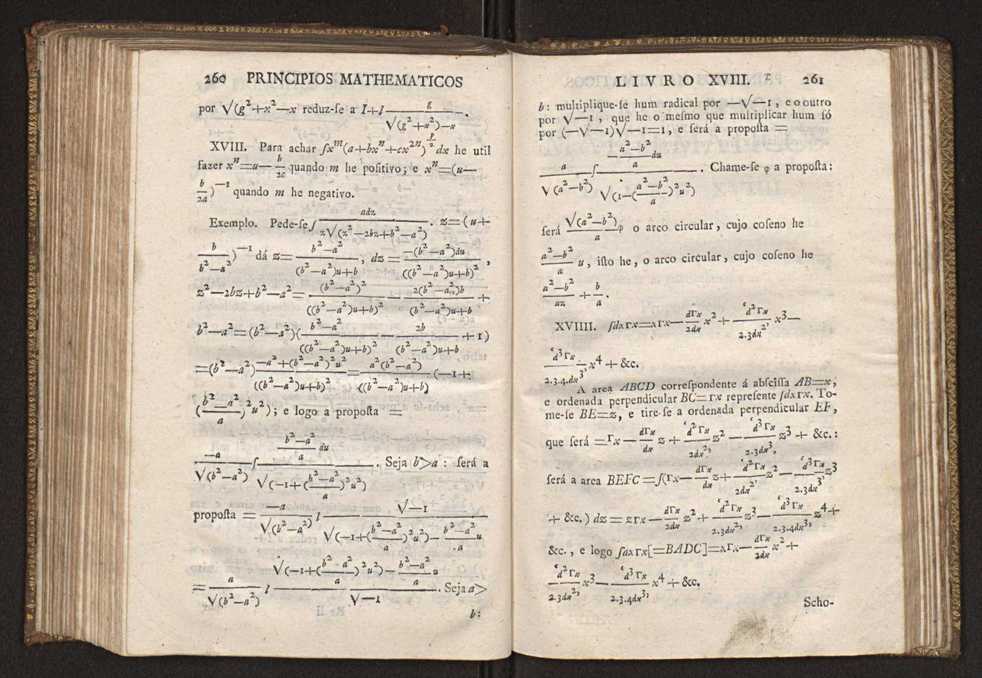 260 PRINCIPIOS MATHEMATICOS
por √(g²+x²—x reduz-ſe a l+l g/(√(g²+x²)—x) .
XVIII. Para achar ſxᵐ(a+bxⁿ+cx²ⁿ)^(p/2) dx he util
fazer xⁿ=u— b/2c quando m he poſitivo; e xⁿ=(u—
b/2a)⁻¹ quando m he negativo.
Exemplo. Pede-ſe ſ adz/(z√(z²—2bz+b²—a²)) . z=(u+
b/(b²—a²))⁻¹ dá z= (b²—a²)/((b²—a²)u+b) , dz= —(b²—a²)du/((b²—a²)u+b)² ,
z²—2bz+b²—a²= (b²—a²)²/((b²—a²)u+b)² — 2(b²—a²)b/((b²—a²)u+b +
b²—a²=(b²—a²)( (b²—a²)/((b²—a²)u+b)² — 2b/((b²—a²)u+b +1)
=(b²—a²) (—a²+(b²—a²)²u²)/((b²—a²)u+b)² = a²(b²—a²)/((b²—a²)u+b) (—1+
((b²—a²)/a)²u²); e logo a propoſta =
—a/√(b²—a²) ſ ((b²—a²)/a du)/√(—1+((b²—a²)/a)²u²) . Seja b>a : ſerá a
propoſta = —a/√(b²—a²) l √—1/(√(—1+((b²—a²)/a)²u²)— (b²—a²)/a u)
= a/√(b²—a²) l (√(—1+((b²—a²)/a)²u²)— (b²—a²)/a u)/√—1 . Seja a>
b:
LIVRO XVIII. 261
b: multiplique-ſe hum radical por —√—1, e o outro
por √—1, que he o meſmo que multiplicar hum ſó
por (—√—1)√—1=1, e ſerá a propoſta =
a/√(a²—b²) ſ (—(a²—b²)/a du)/√(1—((a²—b²)/a)²u²) . Chame-ſe φ a propoſta:
ſerá √(a²—b²)/a φ o arco circular, cujo coſeno he
(a²—b²)/a u, iſto he, o arco circular, cujo coſeno he
(a²—b²)/az + b/a .
XVIIII. ſdxΓx=xΓx— dΓx/2dx x²+ 'd²Γx/2.3dx²' x³—
'd³Γx/2.3.4dx³' x⁴ + &c.
A area ABCD correſpondente á abſciſſa AB=x,
e ordenada perpendicular BC=Γx repreſente ſdxΓx. To-
me-ſe BE=z, e tire-ſe a ordenada perpendicular EF,
que ſerá =Γx— dΓx/dx z + 'd²Γx/2dx²' z² — 'd³Γx/2.3dx³' z³ + &c.:
ſerá a area BEFC=ſ(Γx— dΓx/dx z+ 'd²Γx/2dx²' z²— 'd³Γx/2.3dx³' z³
+ &c.) dz=zΓx— dΓx/2dx z²+ 'd²Γx/2.3dx²' z³— 'd³Γx/2.3.4dx³' z⁴+
&c., e logo ſdxΓx[=BADC]=xΓx— dΓx/2dx x²+
'd²Γx/2.3dx²' x³— 'd³Γx/2.3.4dx³' x⁴ + &c.
Scho-